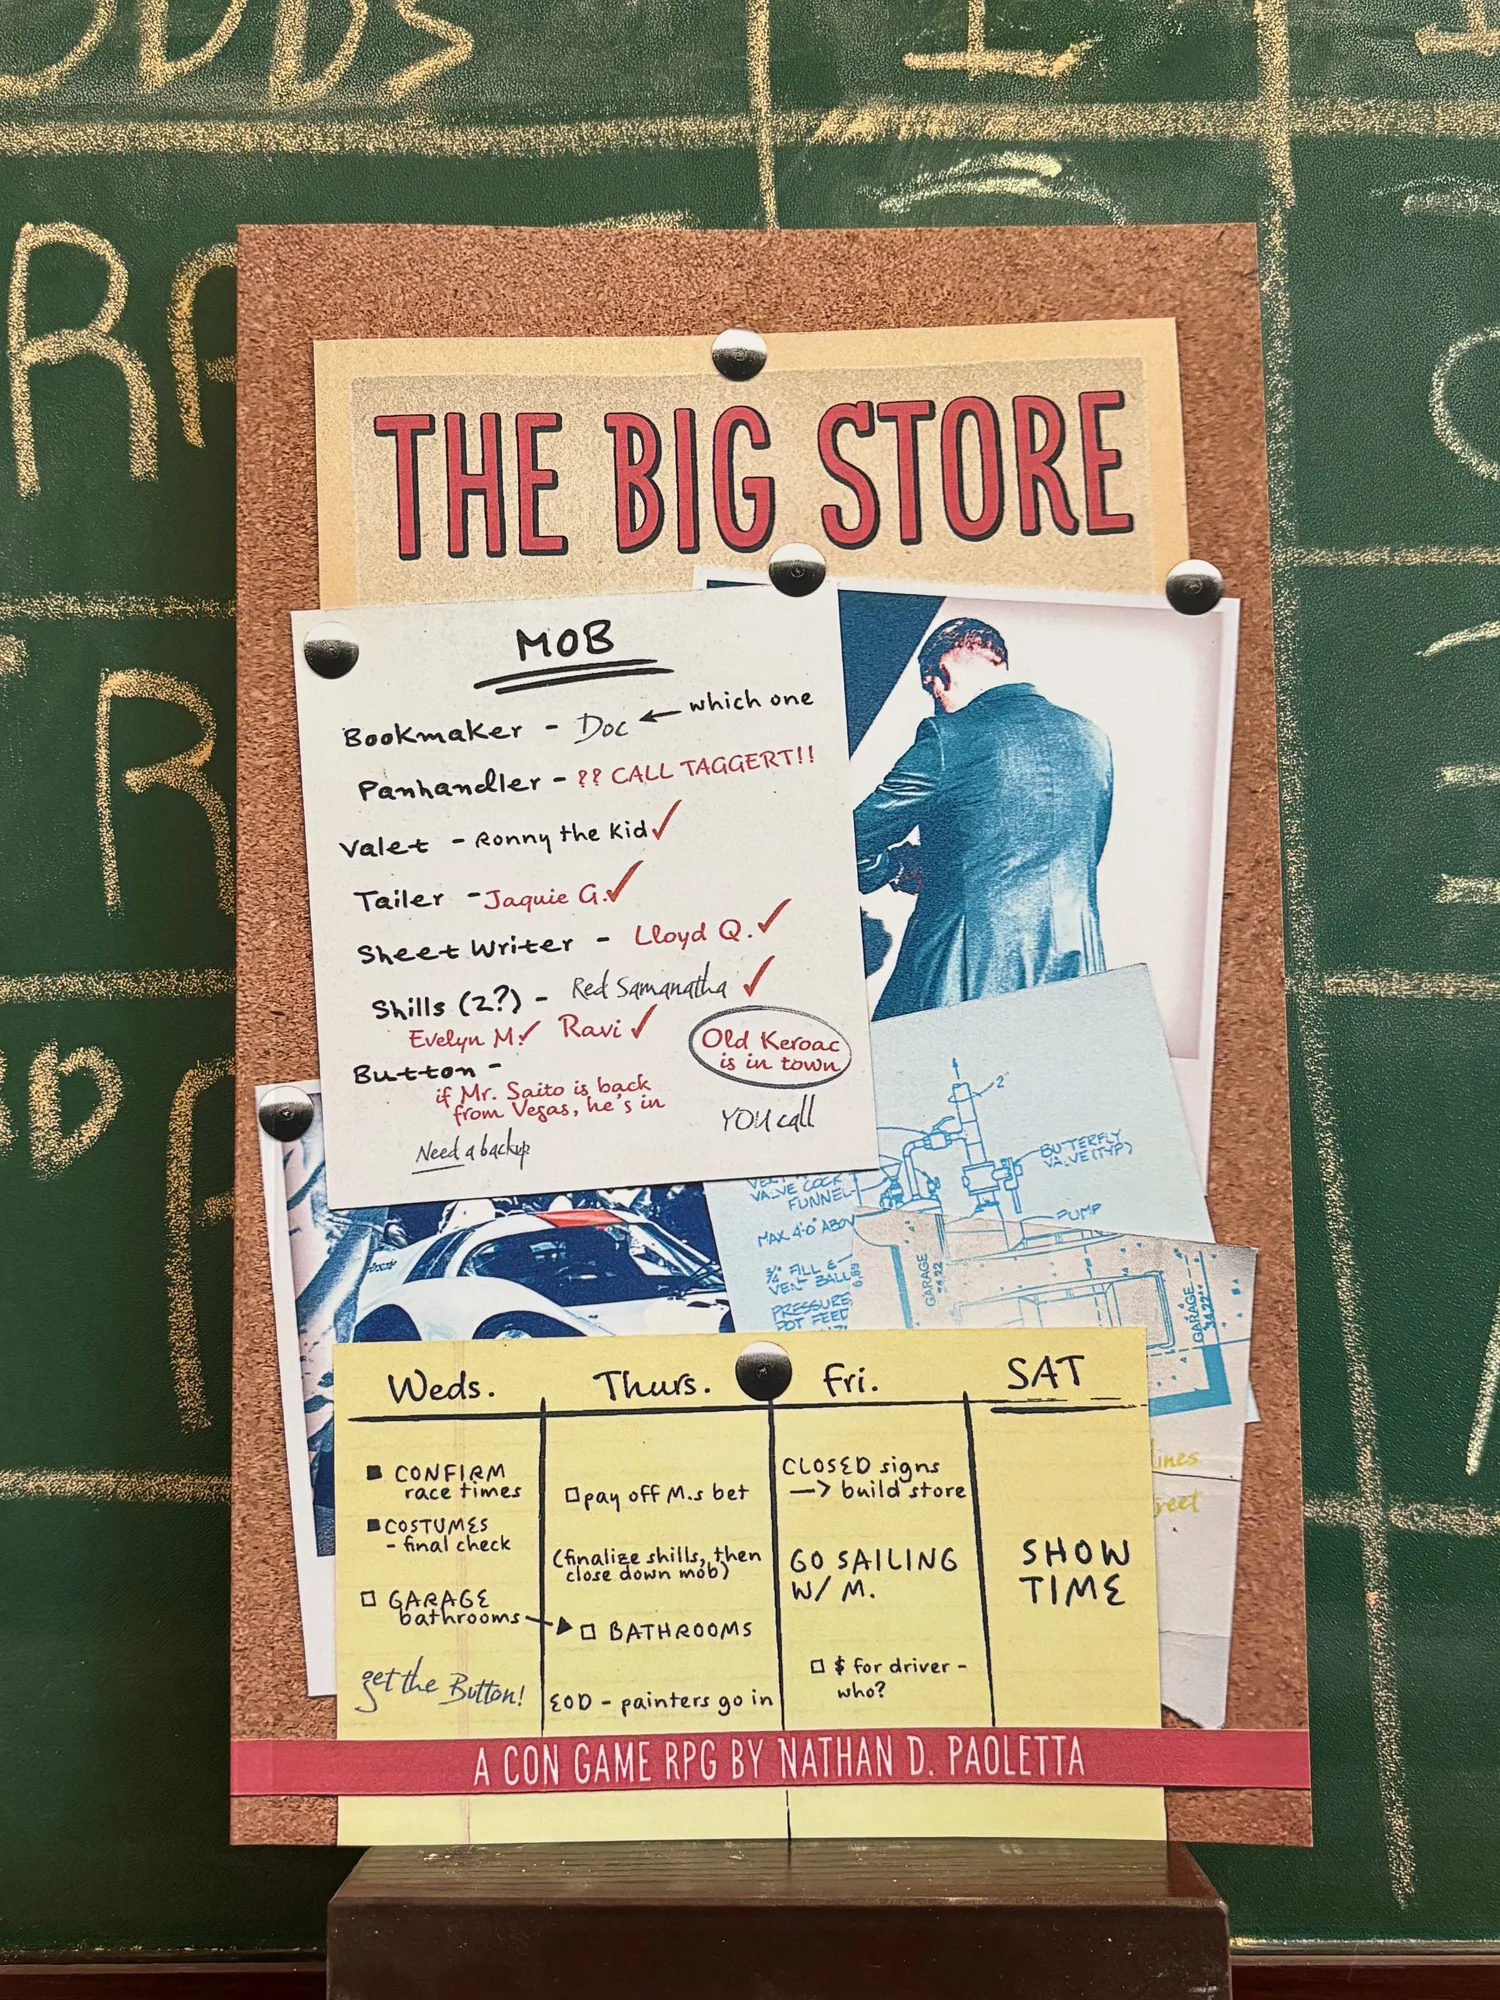 THE BIG STORE
MOB
Bookmaker - Doc ← which one
Panhandler - ?? CALL TAGGERT!!
Valet - Ronny the Kid ✓
Tailer - Jaquie G. ✓
Sheet Writer - Lloyd Q. ✓
Shills (2?) - Red Samanatha ✓
Evelyn M. ✓ Ravi ✓
Old Keroac
is in town
Button -
if Mr. Saito is back
from Vegas, he's in
YOU call
Need a backup
2"
BUTTERFLY
VALVE (TYP)
VALVE COCK
FUNNEL
PUMP
MAX 4'-0" ABOV
3/4" FILL &
VENT BALL
PRESSURE
POT FEED
GARAGE
GARAGE
Weds. Thurs. Fri. SAT
■ CONFIRM
race times
■ COSTUMES
- final check
□ GARAGE
bathrooms
get the Button!
□ pay off M.s bet
(finalize shills, then
close down mob)
□ BATHROOMS
EOD - painters go in
CLOSED signs
→ build store
GO SAILING
W/ M.
□ $ for driver -
who?
SHOW
TIME
lines
reet
A CON GAME RPG BY NATHAN D. PAOLETTA